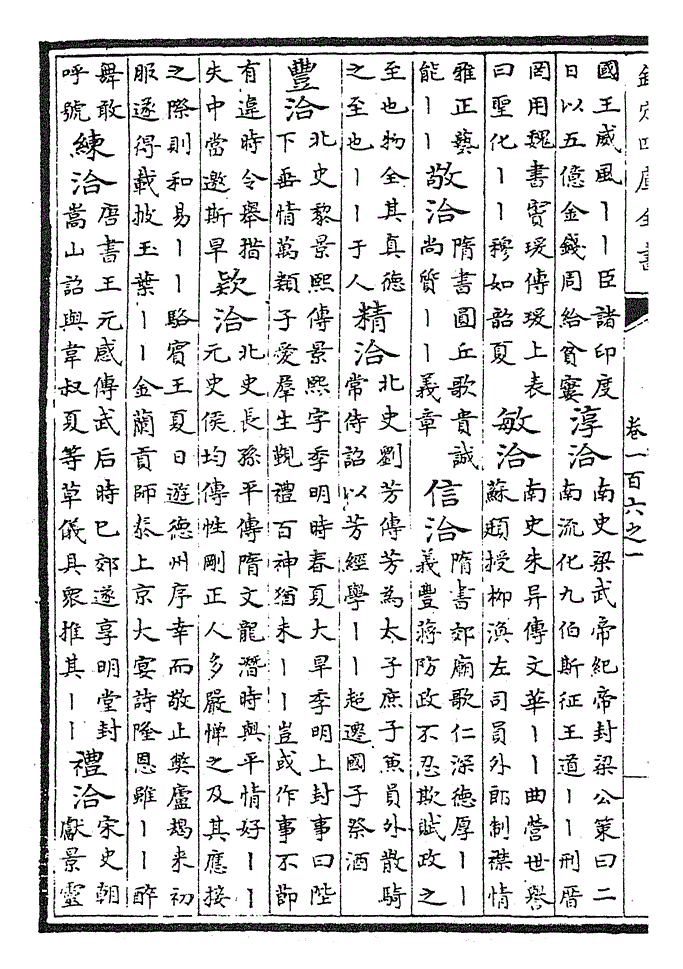 欽定四庫全書
卷一百六之一
國王威風丨丨臣諸印度
日以五億金錢周給貧寠
淳洽
南史梁武帝紀帝封梁公策曰二
南流化九伯斯征王道丨丨刑厝
罔用魏書竇瑗傳瑗上表
曰聖化丨丨穆如韶夏
敏洽
南史朱异傳文華丨丨曲營世譽
蘇頲授柳渙左司員外郎制襟情
雅正藝
能丨丨
敬洽
隋書圓丘歌貴誠
尚質丨丨義章
信洽
隋書郊廟歌仁深德厚丨丨
義豐蔣防政不忍欺賦政之
至也物全其真德
之至也丨丨于人
精洽
北史劉芳傳芳為太子庶子兼員外散騎
常侍詔以芳經學丨丨超遷國子祭酒
豐洽
北史黎景熙傳景熙字季明時春夏大旱季明上封事曰陛
下垂情萬類子愛羣生覲禮百神猶未丨丨豈或作事不節
有違時令舉措
失中當邀斯旱
欵洽
北史長孫平傳隋文龍潛時與平情好丨丨
元史侯均傳性剛正人多嚴憚之及其應接
之際則和易丨丨駱賓王夏日遊德州序幸而敬止樊廬朅來初
服遂得載披玉葉丨丨金蘭貢師泰上京大宴詩隆恩雖丨丨醉
舞敢
呼號
練洽
唐書王元感傳武后時已郊遂享明堂封
嵩山詔與韋叔夏等草儀具衆推其丨丨
禮洽
宋史朝
獻景靈